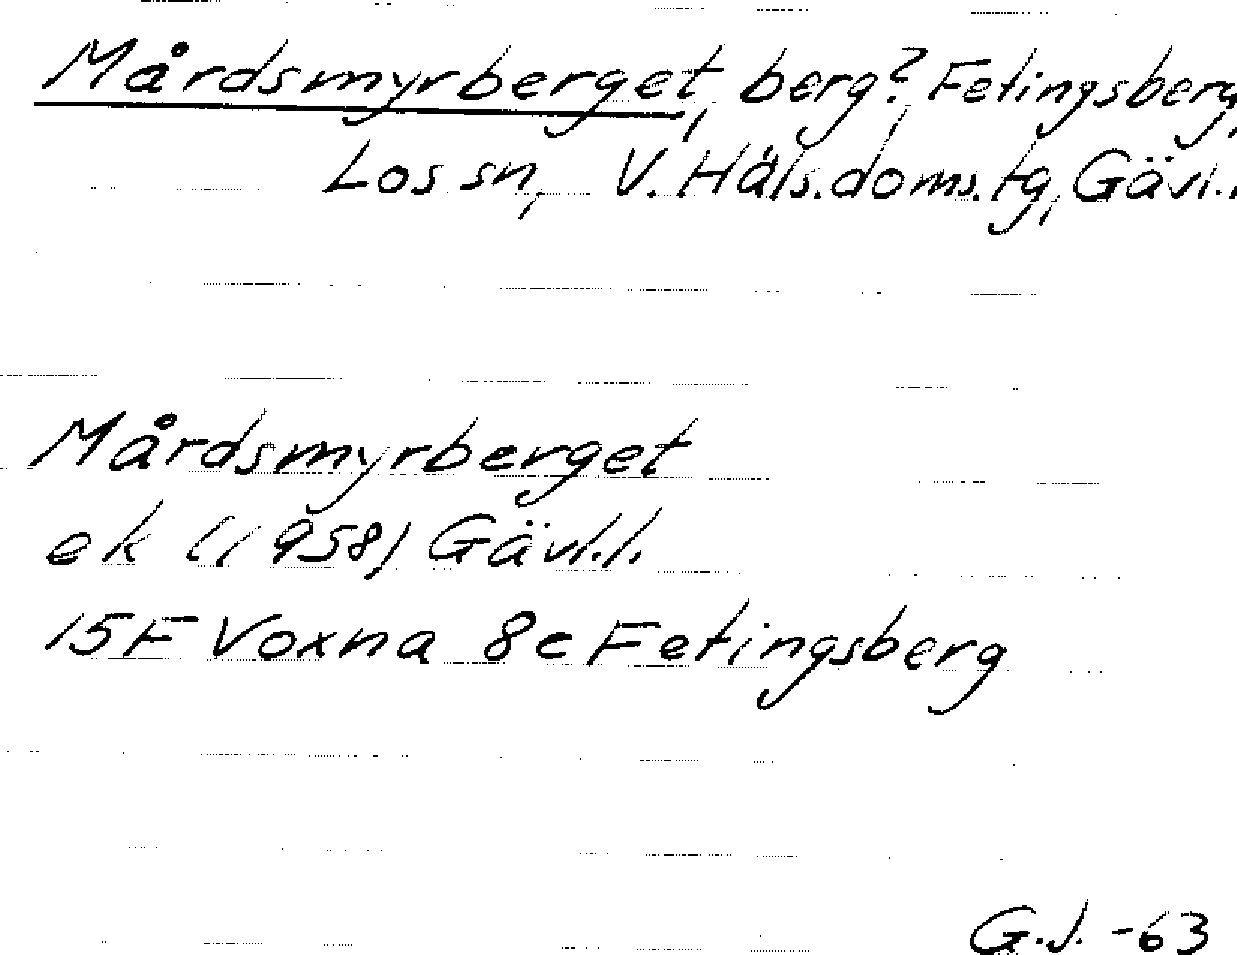 Mårdsmyrberget, berg? Fetingsberg,
Los sn, V. Häls.doms.tg, Gävl.l.
Mårdsmyrberget
ek (1958) Gävl.l.
15F Voxna 8c Fetingsberg
G.J. -63